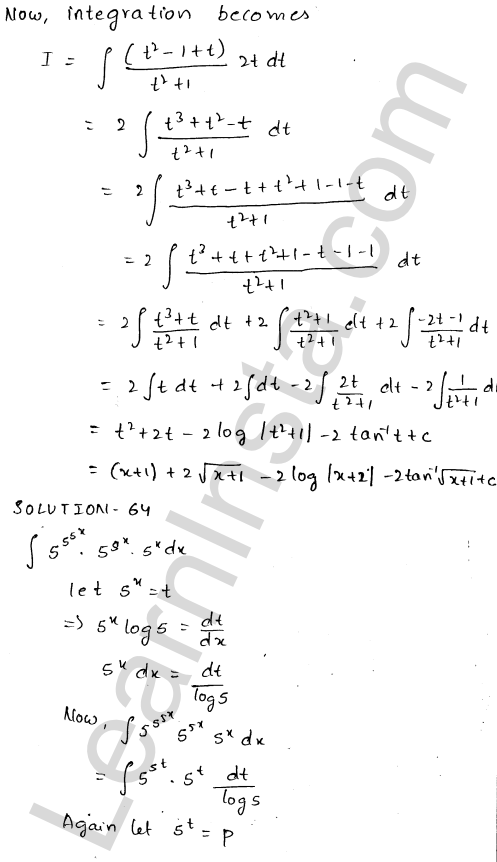 Now, integration becomes
I = ∫ (t² - 1 + t) / (t² + 1) 2t dt
= 2 ∫ (t³ + t² - t) / (t² + 1) dt
= 2 ∫ (t³ + t - t + t² + 1 - 1 - t) / (t² + 1) dt
= 2 ∫ (t³ + t + t² + 1 - t - 1 - 1) / (t² + 1) dt
= 2 ∫ (t³ + t) / (t² + 1) dt + 2 ∫ (t² + 1) / (t² + 1) dt + 2 ∫ (-2t - 1) / (t² + 1) dt
= 2 ∫ t dt + 2 ∫ dt - 2 ∫ 2t / (t² + 1) dt - 2 ∫ 1 / (t² + 1) d
= t² + 2t - 2 log |t² + 1| - 2 tan⁻¹ t + c
= (x+1) + 2 √(x+1) - 2 log |x+2| - 2 tan⁻¹ √(x+1) + c
SOLUTION - 64
∫ 5^5^5^x . 5^5^x . 5^x dx
let 5^x = t
=> 5^x log 5 = dt/dx
5^x dx = dt / log 5
Now, ∫ 5^5^5^x 5^5^x 5^x dx
= ∫ 5^5^t . 5^t dt / log 5
Again let 5^t = p
LearnInsta.com